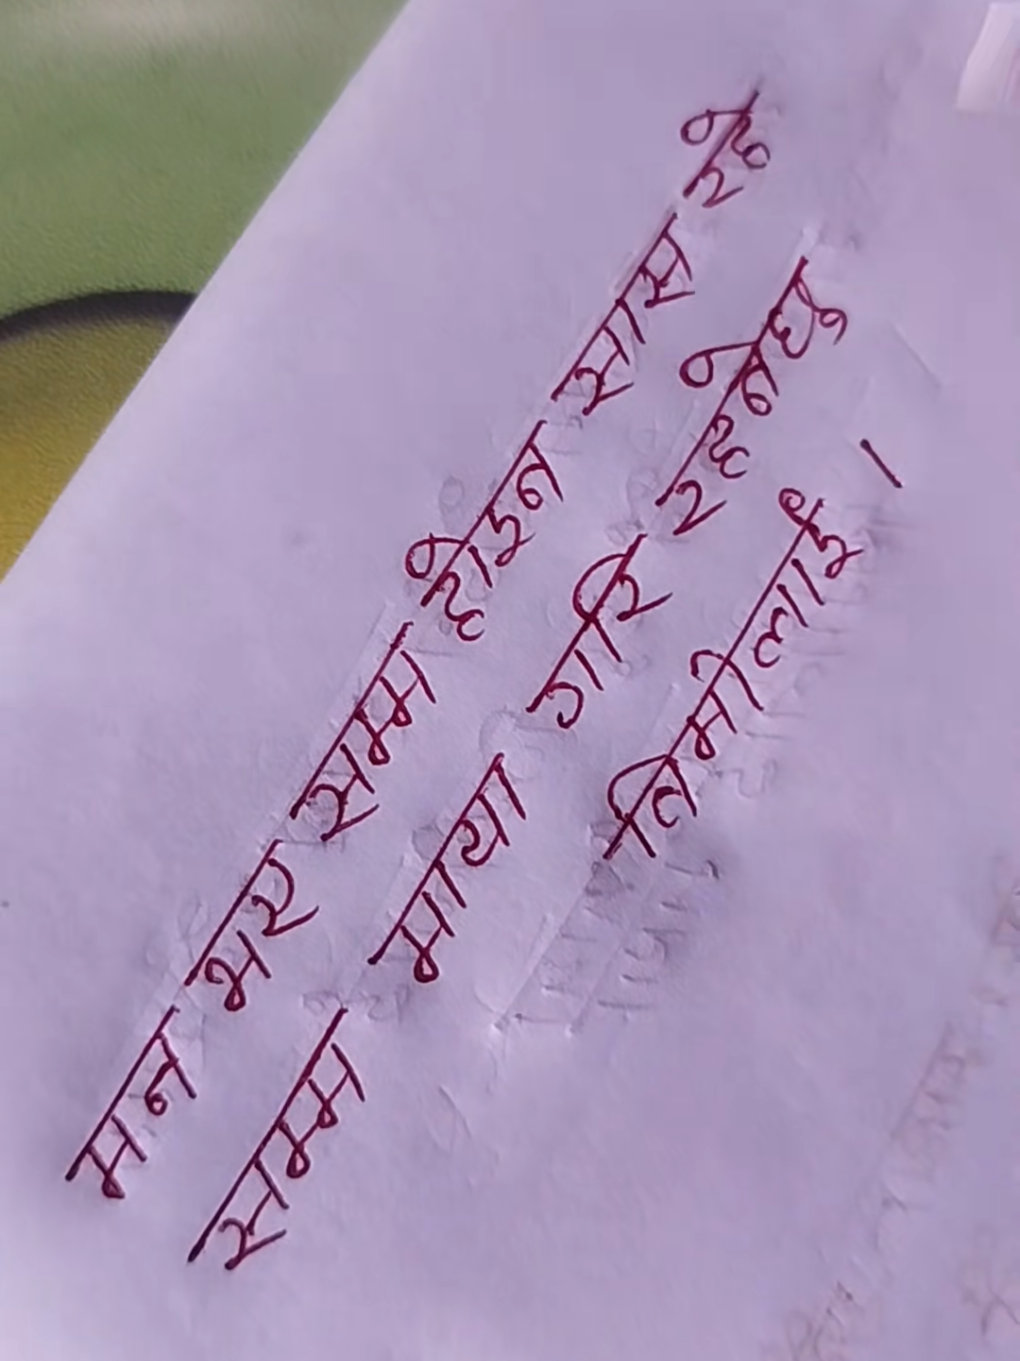 मन भर सम्म होइन सास रहे
सम्म माया गरि रहनेछु
तिमीलाई ।